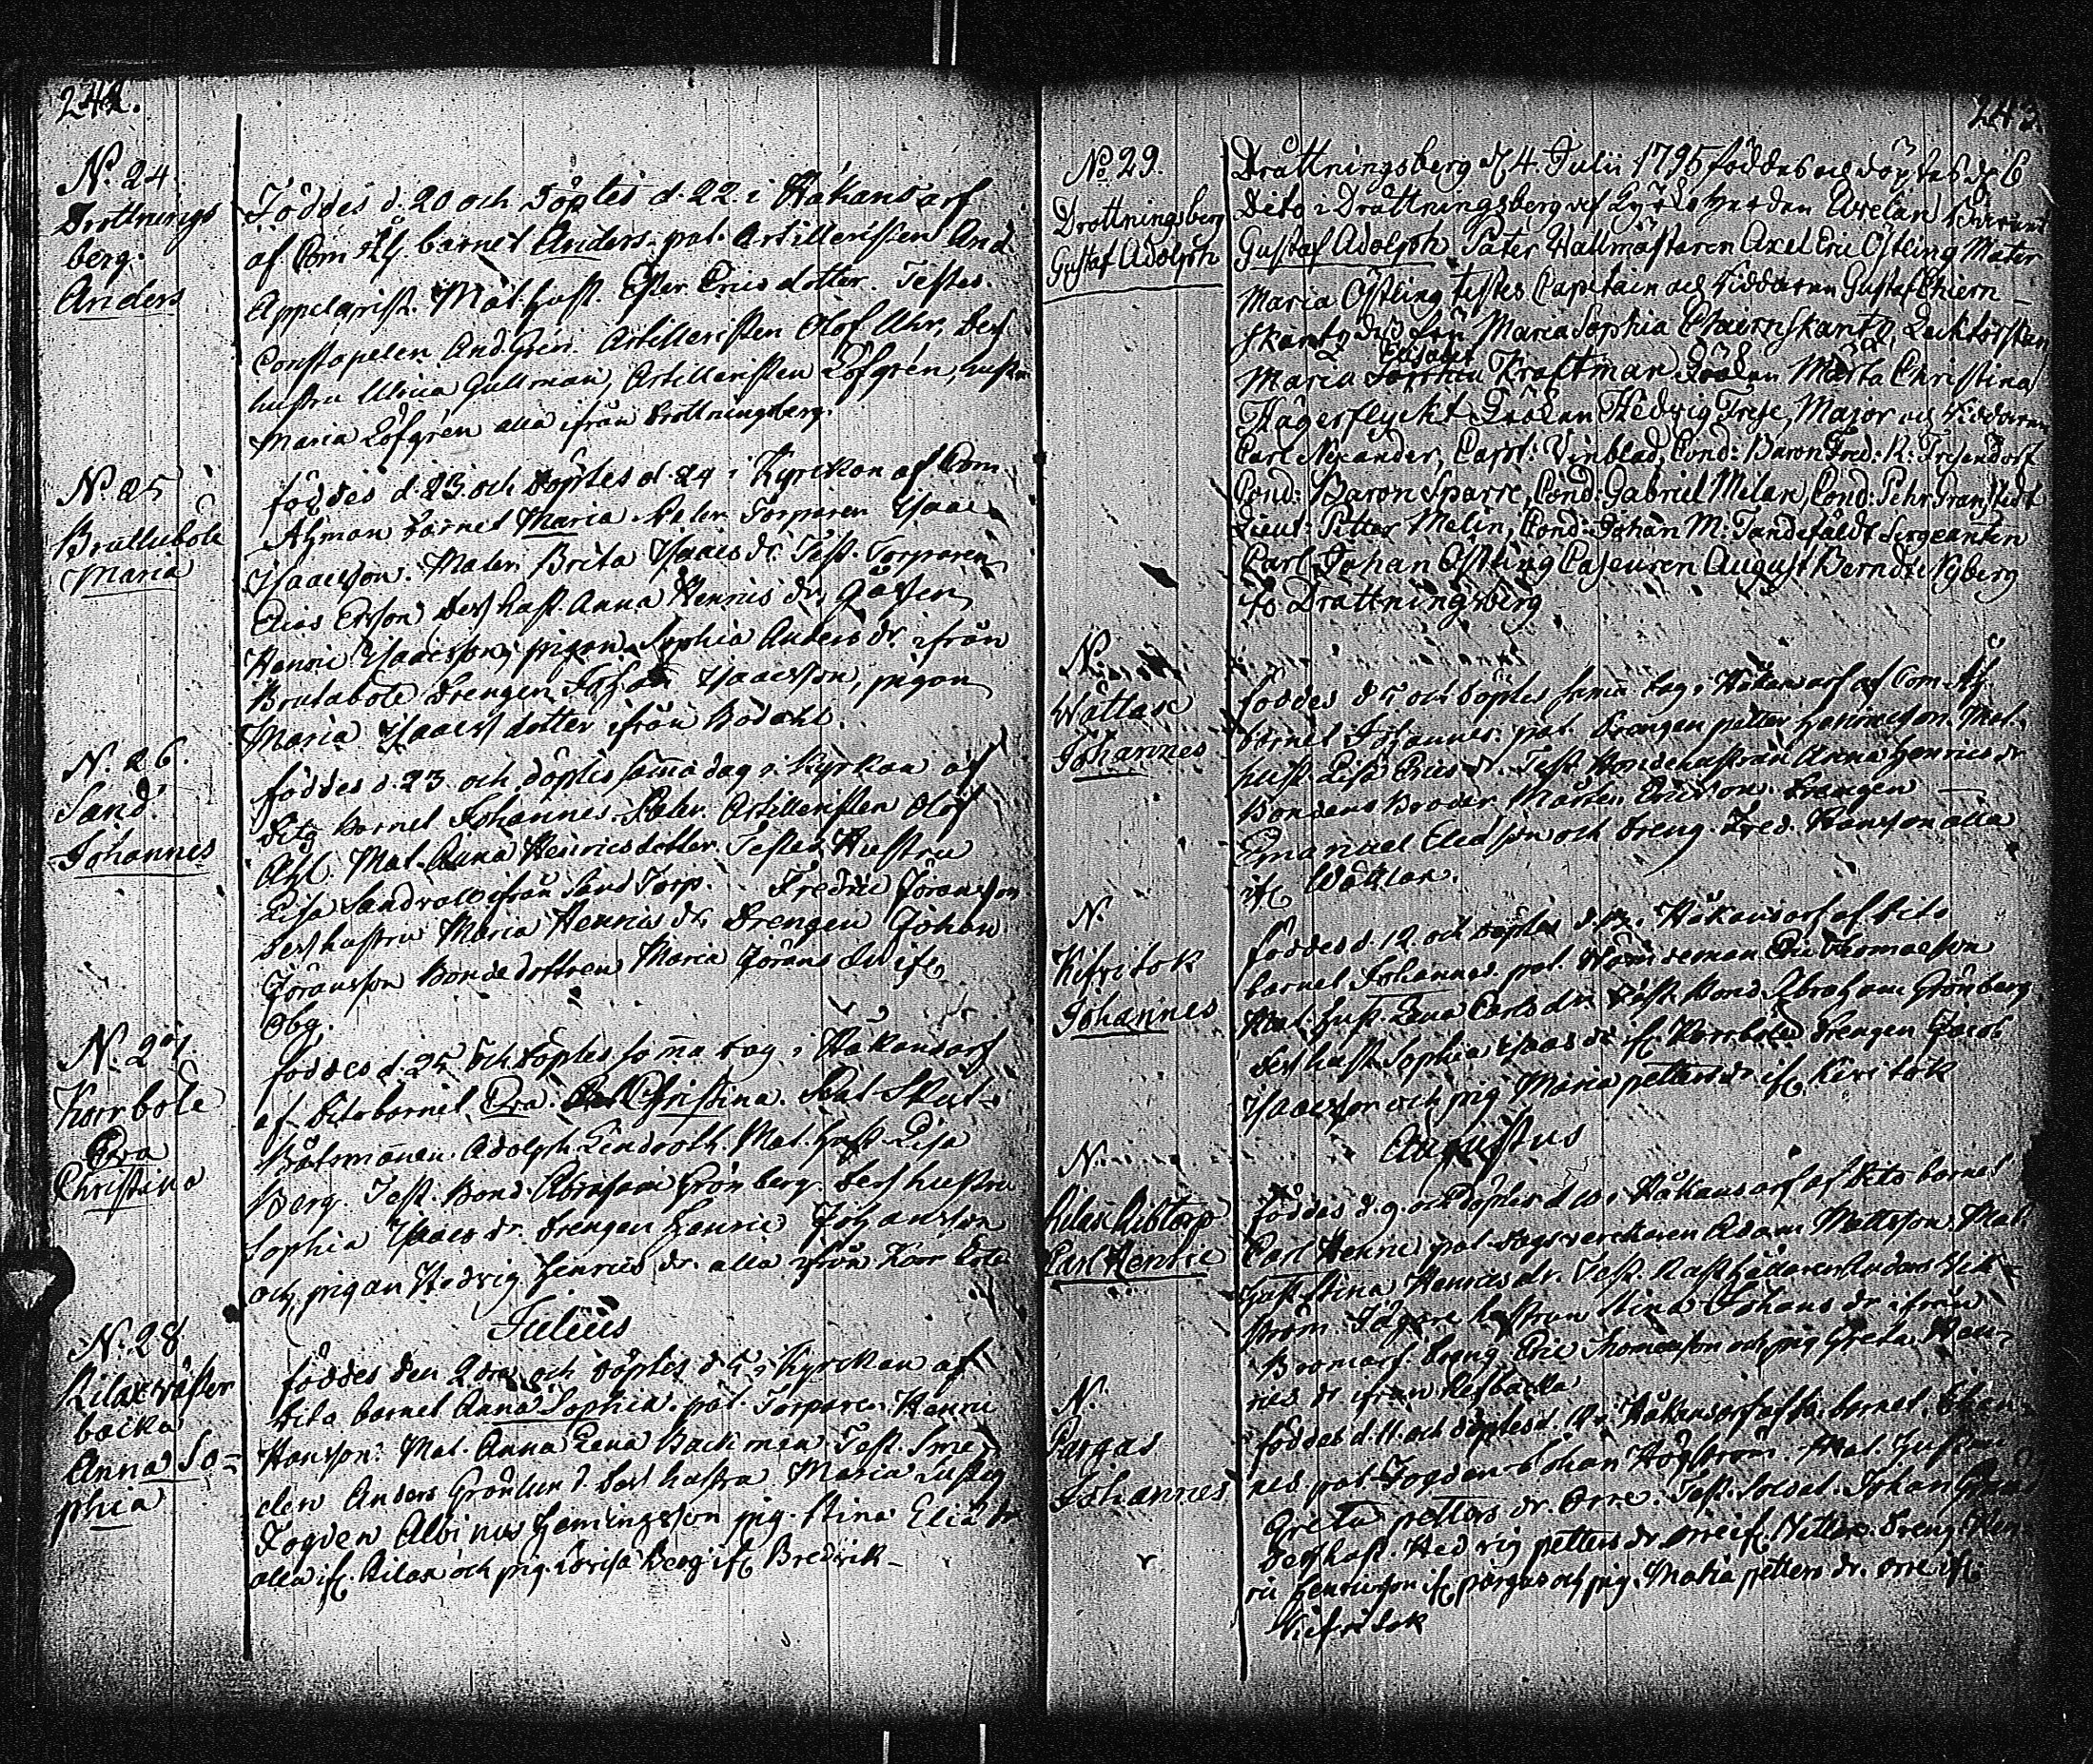 242.
N. 24
Drottnings
berg.
Anders
Föddes d. 20 och döptes d. 22. i Håkansarf
af Com barnet Anders. pat. Artilleristen And.
Appelqrist. Mat. hust. Ester Erics dotter. Testes.
Constapelen And. Grön. Artilleristen Olof Uhr, dess
hustru Ulrica Gullman, Artilleristen Löfgrén, hustr.
Maria Löfgrén alla ifrån Drottningsberg.
N. 25
Brutubole
Maria
föddes d. 23. och döptes d. 24 i Kyrckan af Com.
Ahman barnet Maria Pater Torparen Isaac
Isaacsson. Mater. Brita Isaacs dr. Test. Torparen
Elias Ersson dess hust. Anna Henrics dr,
Henric Isaacsson, pigan Sophia Anders dr. ifrån
Brutabole Drengen Johan Isaacsson, pigan
Maria Isaacs dotter ifrån Bödahl.
N. 26.
Sand.
Johannes
föddes d. 23 och döptes samma dag i Kyrkan af
Dito barnet Johannes. Pater. Artilleristen Olof
Ahl. Mat. Anna Heinricsdotter. Testes Hustru
Lisa Sandvall ifrån Sand Torp. Fredric Joransson
dess hustru Maria Henrics dr Drengen Johan
Göransson Bonde dottren Maria Görans dr if
Öby.
N. 27
Korrbole
Eva
Christina
föddes d. 25 och döptes samma dag i Håkansarf
af Dito barnet Eva Christina. Pat. Skut-
Båtsmannen Adolph Lindroth. Mat. hust. Lisa
Berg. Test. Bond. Abraham Grönberg dess hustru
Sophia Isaacs dr. Drengen Henric Johansson
och pigan Hedvig Henrics dr. alla ifrån Korrbole
Julius
N. 28
Rilaxwäster
backa
Anna So=
phia
föddes den 2dra och döptes d. 5 i Kyrckan af
Dito barnet Anna Sophia. pat. Torparen Henric
Hansson. Mat. Anna Lena Backman. Test. Sme
den Anders Grönlund dess hustru Maria Lustig
Fogden Albinus Hemingsson pig. Stina Elias dr
alla if. Rilax och pig. Lovisa Berg if. Bredvik-
243.
No 29.
Drottningsberg
Gustaf Adolph
Dråttningsberg d. 4. Julii 1795 föddes och döptes d. 6
Dito i Dråttningsberg af Herdan Avelan
Gustaf Adolph Pater Wallmästaren Axel Eric Östling Mater
Maria Östling testes Capitain och Riddaren Gustaf Chiern-
skantz Maria Sophia Chiernskantz, Lecktörskan
Maria Elisabet Kraftman Frökan Märta Christina
Hägerflyckt Frökan Hedwig Frese, Major och Riddaren
Carl Nexander, Capt: Vinblad, Cond: Baron Fred: R: Friesendorf
Cond: Baron Sparre, Cond. Gabriel Milan, Cond: Pehr Granstedt
Lieut: Petter Melin, Cond. Johan M: Tandefäldt Sergeanten
Carl Johan Östling Caseuren August Berndt Nyberg
fr Dråttningsberg
N.
Wättlax
Johannes
föddes d. 5 och döptes samma dag i Håkansarf af Com. Åh.
barnet Johannes. pat. Drengen petter Henricsson. Mat.
hust. Lisa Erics dr. Test. Bondehustrun Anna Henrics dr
Bondens Broder Mårten Ericsson. Drengen
Emanuel Eliasson och Dreng. Fred. Hansson alla
if Wättlax.
N.
Kifvitok
Johannes
föddes d. 12 och döptes d. 13 i Håkansarf af Dito
barnet Johannes. pat. Nämdeman Eric Thomasson
Mat. hust. Lena Carls dr. Test. Bond. Abraham Grönberg
dess hust. Sophia Isaacs dr if. Korrbole Drengen Jacob
Isaacsson och pig Maria petters dr if. Kivitok
Augustus
N.
Rilax Ribtorp
Carl Henric
föddes d. 9. och döptes d. 10 i Håkansarf af Dito barnet
Carl Henric pat. Dagsverckaren Adam Mattsson. Mat.
Hust Stina Henrics dr. Test. Rusthållaren Anders Vik=
ström. Jägare hustrun Stina Johans dr ifrån
Bromarf. Dreng Eric Thomasson och pig Greta Hen=
rics dr ifrån Refbacka
N.
Pargas
Johannes
föddes d. 11. och döptes d. 12 i Håkansarf af Dito barnet. Johan-
nes pat. Fogden Johan Högström. Mat. Hustru
Greta petters dr. Orre. Test. Soldat. Johan
dess hust. Hedvig petters dr Orre if. Vättlax. Dreng Hen
ric Henricsson if pargas och pig. Maria petters dr. Orre if.
Kifvitok